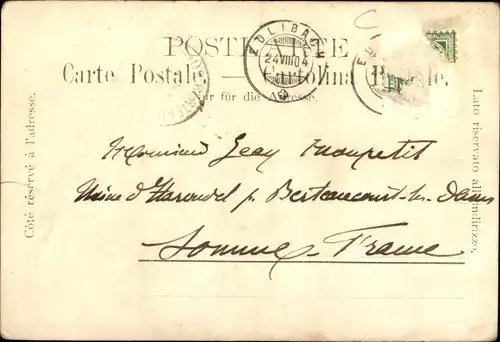 POSTKARTE
Carte Postale. — Cartolina Postale.
Nur für die Adresse.
ZOLLBACH
24 VIII 04
Côté réservé à l'adresse.
Lato riservato all'indirizzo.
Monsieur Jean Monpetit
Usine d'Harondel p. Bertaucourt-les-Dames
Somme - France